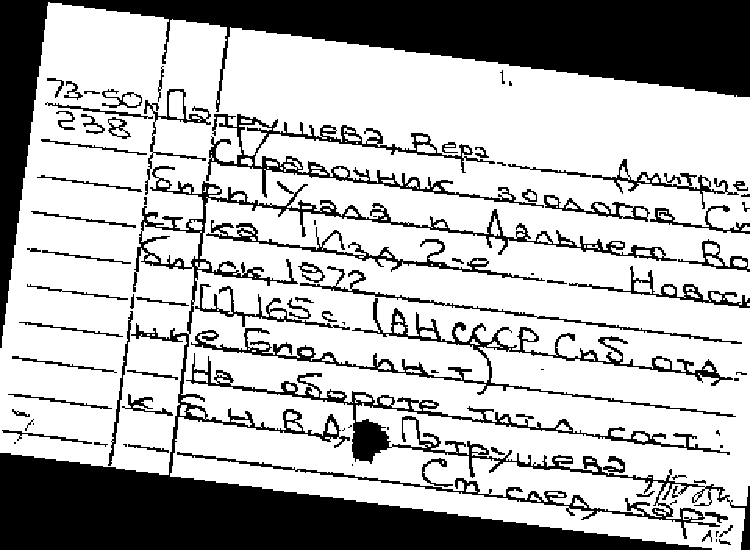 1.
73-50м Патрушева, Вера Дмитрие
238 Справочник зоологов Си
бири, Урала и Дальнего Во
стока. Изд. 2-е Новоси
бирск, 1972
III, 165 с. (АН СССР. Сиб. отд-
ние Биол. ин-т).
На обороте тит. л. сост.:
к. б. н. В. Д. Патрушева
См. след. карт.